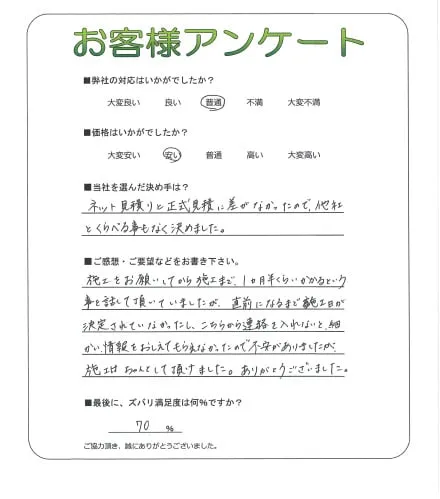 お客様アンケート
■弊社の対応はいかがでしたか?
大変良い 良い 普通 不満 大変不満
■価格はいかがでしたか?
大変安い 安い 普通 高い 大変高い
■当社を選んだ決め手は?
ネット見積りと正式見積に差がなかったので、他社
とくらべる事もなく決めました。
■ご感想・ご要望などをお書き下さい。
施工をお願いしてから施工まで、1ヵ月半くらいかかるという
事を話して頂いていましたが、直前になるまで施工日が
決定されていなかったし、こちらから連絡を入れないと、細
かい情報をおしえてもらえなかったので不安がありましたが、
施工は ちゃんとして頂けました。ありがとうございました。
■最後に、ズバリ満足度は何%ですか?
70 %
ご協力頂き、誠にありがとうございました。